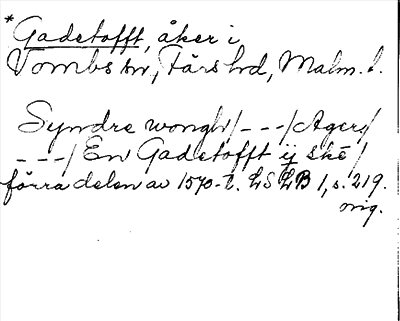 *Gadetofft, åker i
Tombs sn, Färs hd, Malm. l.
Syndre wongh/---/Agers/
---/En Gadetofft ij skē/
förra delen av 1570-t. LSLB 1, s. 219.
orig.